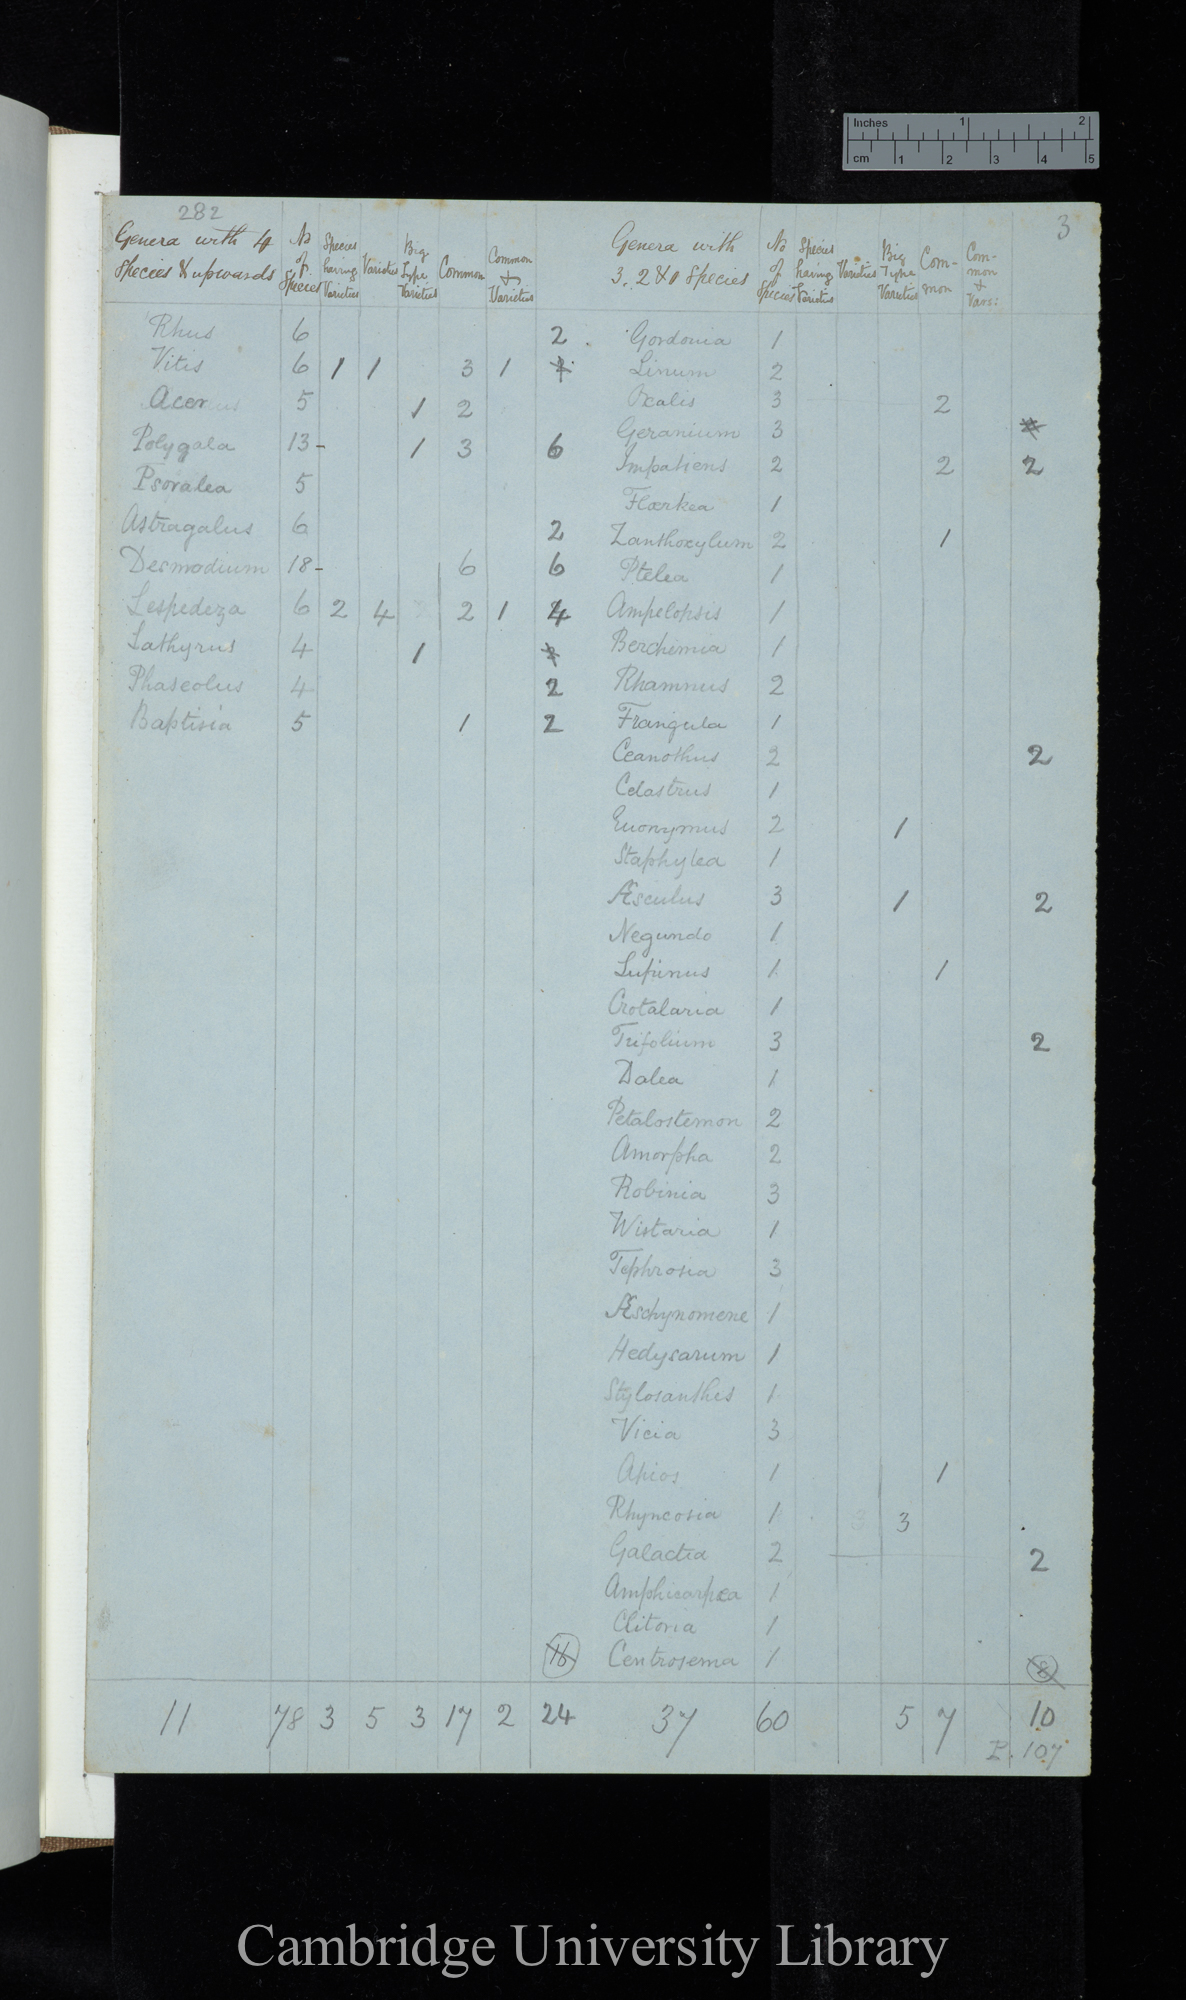 Inches 1 2
cm 1 2 3 4 5
282
3
Genera with 4 species & upwards | No of Species | Species having Varieties | Varieties | Big Type Varieties | Common | Common & Varieties
Rhus 6 2
Vitis 6 1 1 3 1
Acer 5 1 2
Polygala 13- 1 3 6
Psoralea 5
Astragalus 6 2
Desmodium 18- 6 6
Lespedeza 6 2 4 2 1 4
Lathyrus 4 1
Phaseolus 4 2
Baptisia 5 1 2
16
11 78 3 5 3 17 2 24
Genera with 3, 2 & 1 species | No of Species | Species having Varieties | Varieties | Big Type Varieties | Com-mon | Com-mon & Vars:
Gordonia 1
Linum 2
Oxalis 3 2
Geranium 3
Impatiens 2 2 2
Flœrkea 1
Zanthoxylum 2 1
Ptelea 1
Ampelopsis 1
Berchemia 1
Rhamnus 2
Frangula 1
Ceanothus 2 2
Celastrus 1
Euonymus 2 1
Staphylea 1
Æsculus 3 1 2
Negundo 1
Lupinus 1 1
Crotalaria 1
Trifolium 3 2
Dalea 1
Petalostemon 2
Amorpha 2
Robinia 3
Wistaria 1
Tephrosia 3
Æschynomene 1
Hedysarum 1
Stylosanthes 1
Vicia 3
Apios 1 1
Rhyncosia 1 3
Galactia 2 2
Amphicarpæa 1
Clitoria 1
Centrosema 1 8
37 60 5 7 10
P. 107
Cambridge University Library